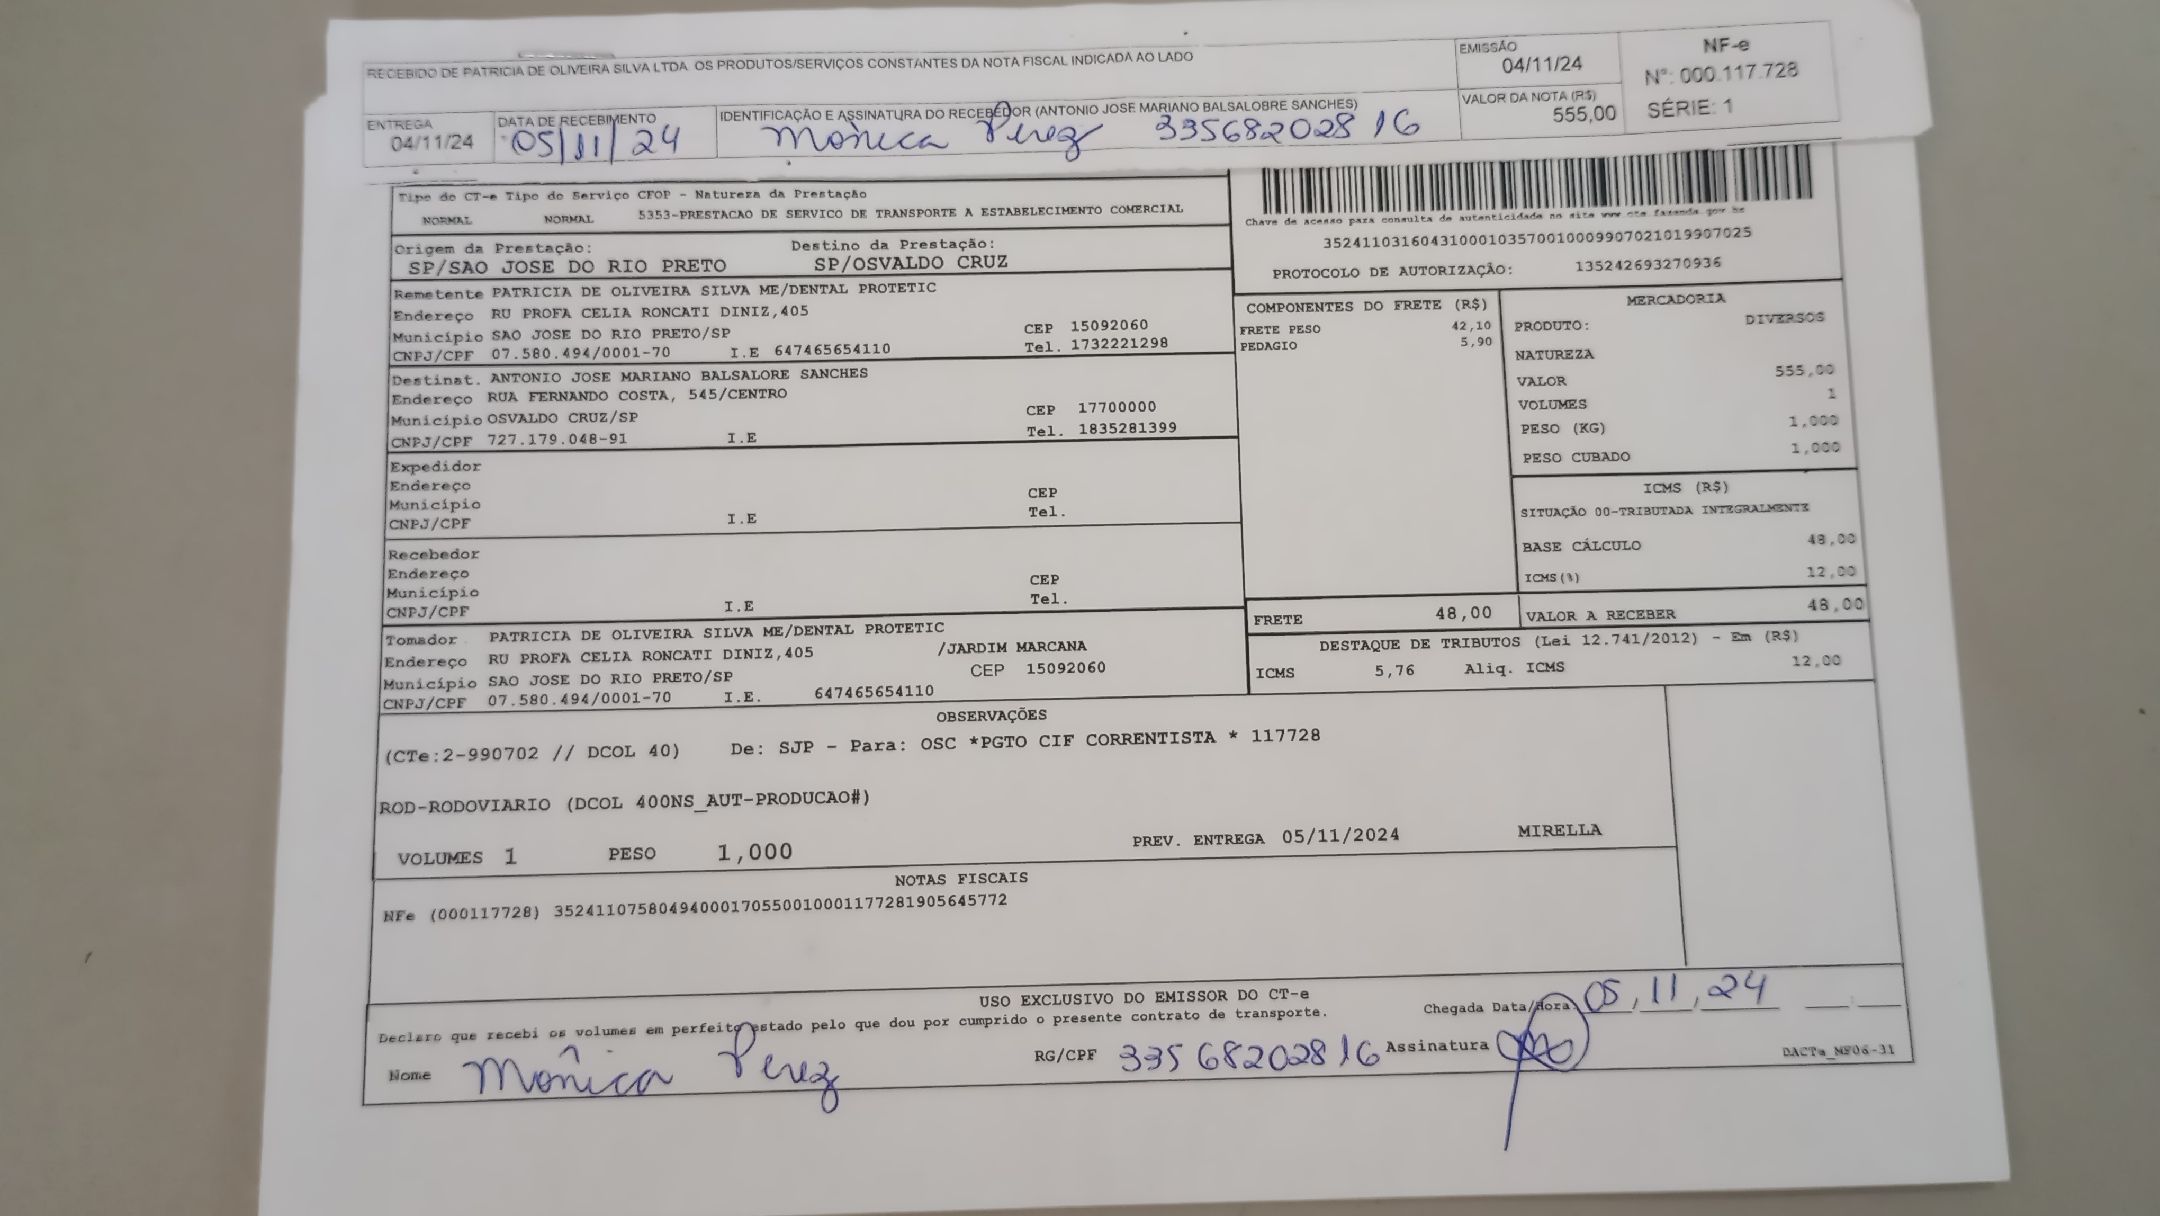 RECEBIDO DE PATRICIA DE OLIVEIRA SILVA LTDA OS PRODUTOS/SERVIÇOS CONSTANTES DA NOTA FISCAL INDICADA AO LADO
EMISSÃO
04/11/24
VALOR DA NOTA (R$)
555,00
NF-e
Nº: 000.117.728
SÉRIE: 1
ENTREGA
04/11/24
DATA DE RECEBIMENTO
05/11/24
IDENTIFICAÇÃO E ASSINATURA DO RECEBEDOR (ANTONIO JOSE MARIANO BALSALOBRE SANCHES)
Mônica Perez 33568202816
Tipo do CT-e Tipo do Serviço CFOP - Natureza da Prestação
NORMAL NORMAL 5353-PRESTACAO DE SERVICO DE TRANSPORTE A ESTABELECIMENTO COMERCIAL
Origem da Prestação: Destino da Prestação:
SP/SAO JOSE DO RIO PRETO SP/OSVALDO CRUZ
Chave de acesso para consulta de autenticidade no site www.cte.fazenda.gov.br
35241103160431000103570010009907021019907025
PROTOCOLO DE AUTORIZAÇÃO: 135242693270936
Remetente PATRICIA DE OLIVEIRA SILVA ME/DENTAL PROTETIC
Endereço RU PROFA CELIA RONCATI DINIZ,405
Município SAO JOSE DO RIO PRETO/SP CEP 15092060
CNPJ/CPF 07.580.494/0001-70 I.E 647465654110 Tel. 1732221298
Destinat. ANTONIO JOSE MARIANO BALSALORE SANCHES
Endereço RUA FERNANDO COSTA, 545/CENTRO
Município OSVALDO CRUZ/SP CEP 17700000
CNPJ/CPF 727.179.048-91 I.E Tel. 1835281399
Expedidor
Endereço
Município CEP
CNPJ/CPF I.E Tel.
Recebedor
Endereço
Município CEP
CNPJ/CPF I.E Tel.
Tomador PATRICIA DE OLIVEIRA SILVA ME/DENTAL PROTETIC
Endereço RU PROFA CELIA RONCATI DINIZ,405 /JARDIM MARCANA
Município SAO JOSE DO RIO PRETO/SP CEP 15092060
CNPJ/CPF 07.580.494/0001-70 I.E. 647465654110
COMPONENTES DO FRETE (R$)
FRETE PESO 42,10
PEDAGIO 5,90
MERCADORIA
PRODUTO: DIVERSOS
NATUREZA
VALOR 555,00
VOLUMES 1
PESO (KG) 1,000
PESO CUBADO 1,000
ICMS (R$)
SITUAÇÃO 00-TRIBUTADA INTEGRALMENTE
BASE CÁLCULO 48,00
ICMS(%) 12,00
FRETE 48,00 VALOR A RECEBER 48,00
DESTAQUE DE TRIBUTOS (Lei 12.741/2012) - Em (R$)
ICMS 5,76 Aliq. ICMS 12,00
OBSERVAÇÕES
(CTe:2-990702 // DCOL 40) De: SJP - Para: OSC *PGTO CIF CORRENTISTA * 117728
ROD-RODOVIARIO (DCOL 400NS_AUT-PRODUCAO#)
VOLUMES 1 PESO 1,000 PREV. ENTREGA 05/11/2024 MIRELLA
NOTAS FISCAIS
NFe (000117728) 35241107580494000170550010001177281905645772
USO EXCLUSIVO DO EMISSOR DO CT-e
Declaro que recebi os volumes em perfeito estado pelo que dou por cumprido o presente contrato de transporte.
Chegada Data/Hora: 05/11/24
Nome Mônica Perez RG/CPF 33568202816 Assinatura
DACTe_MF06-31